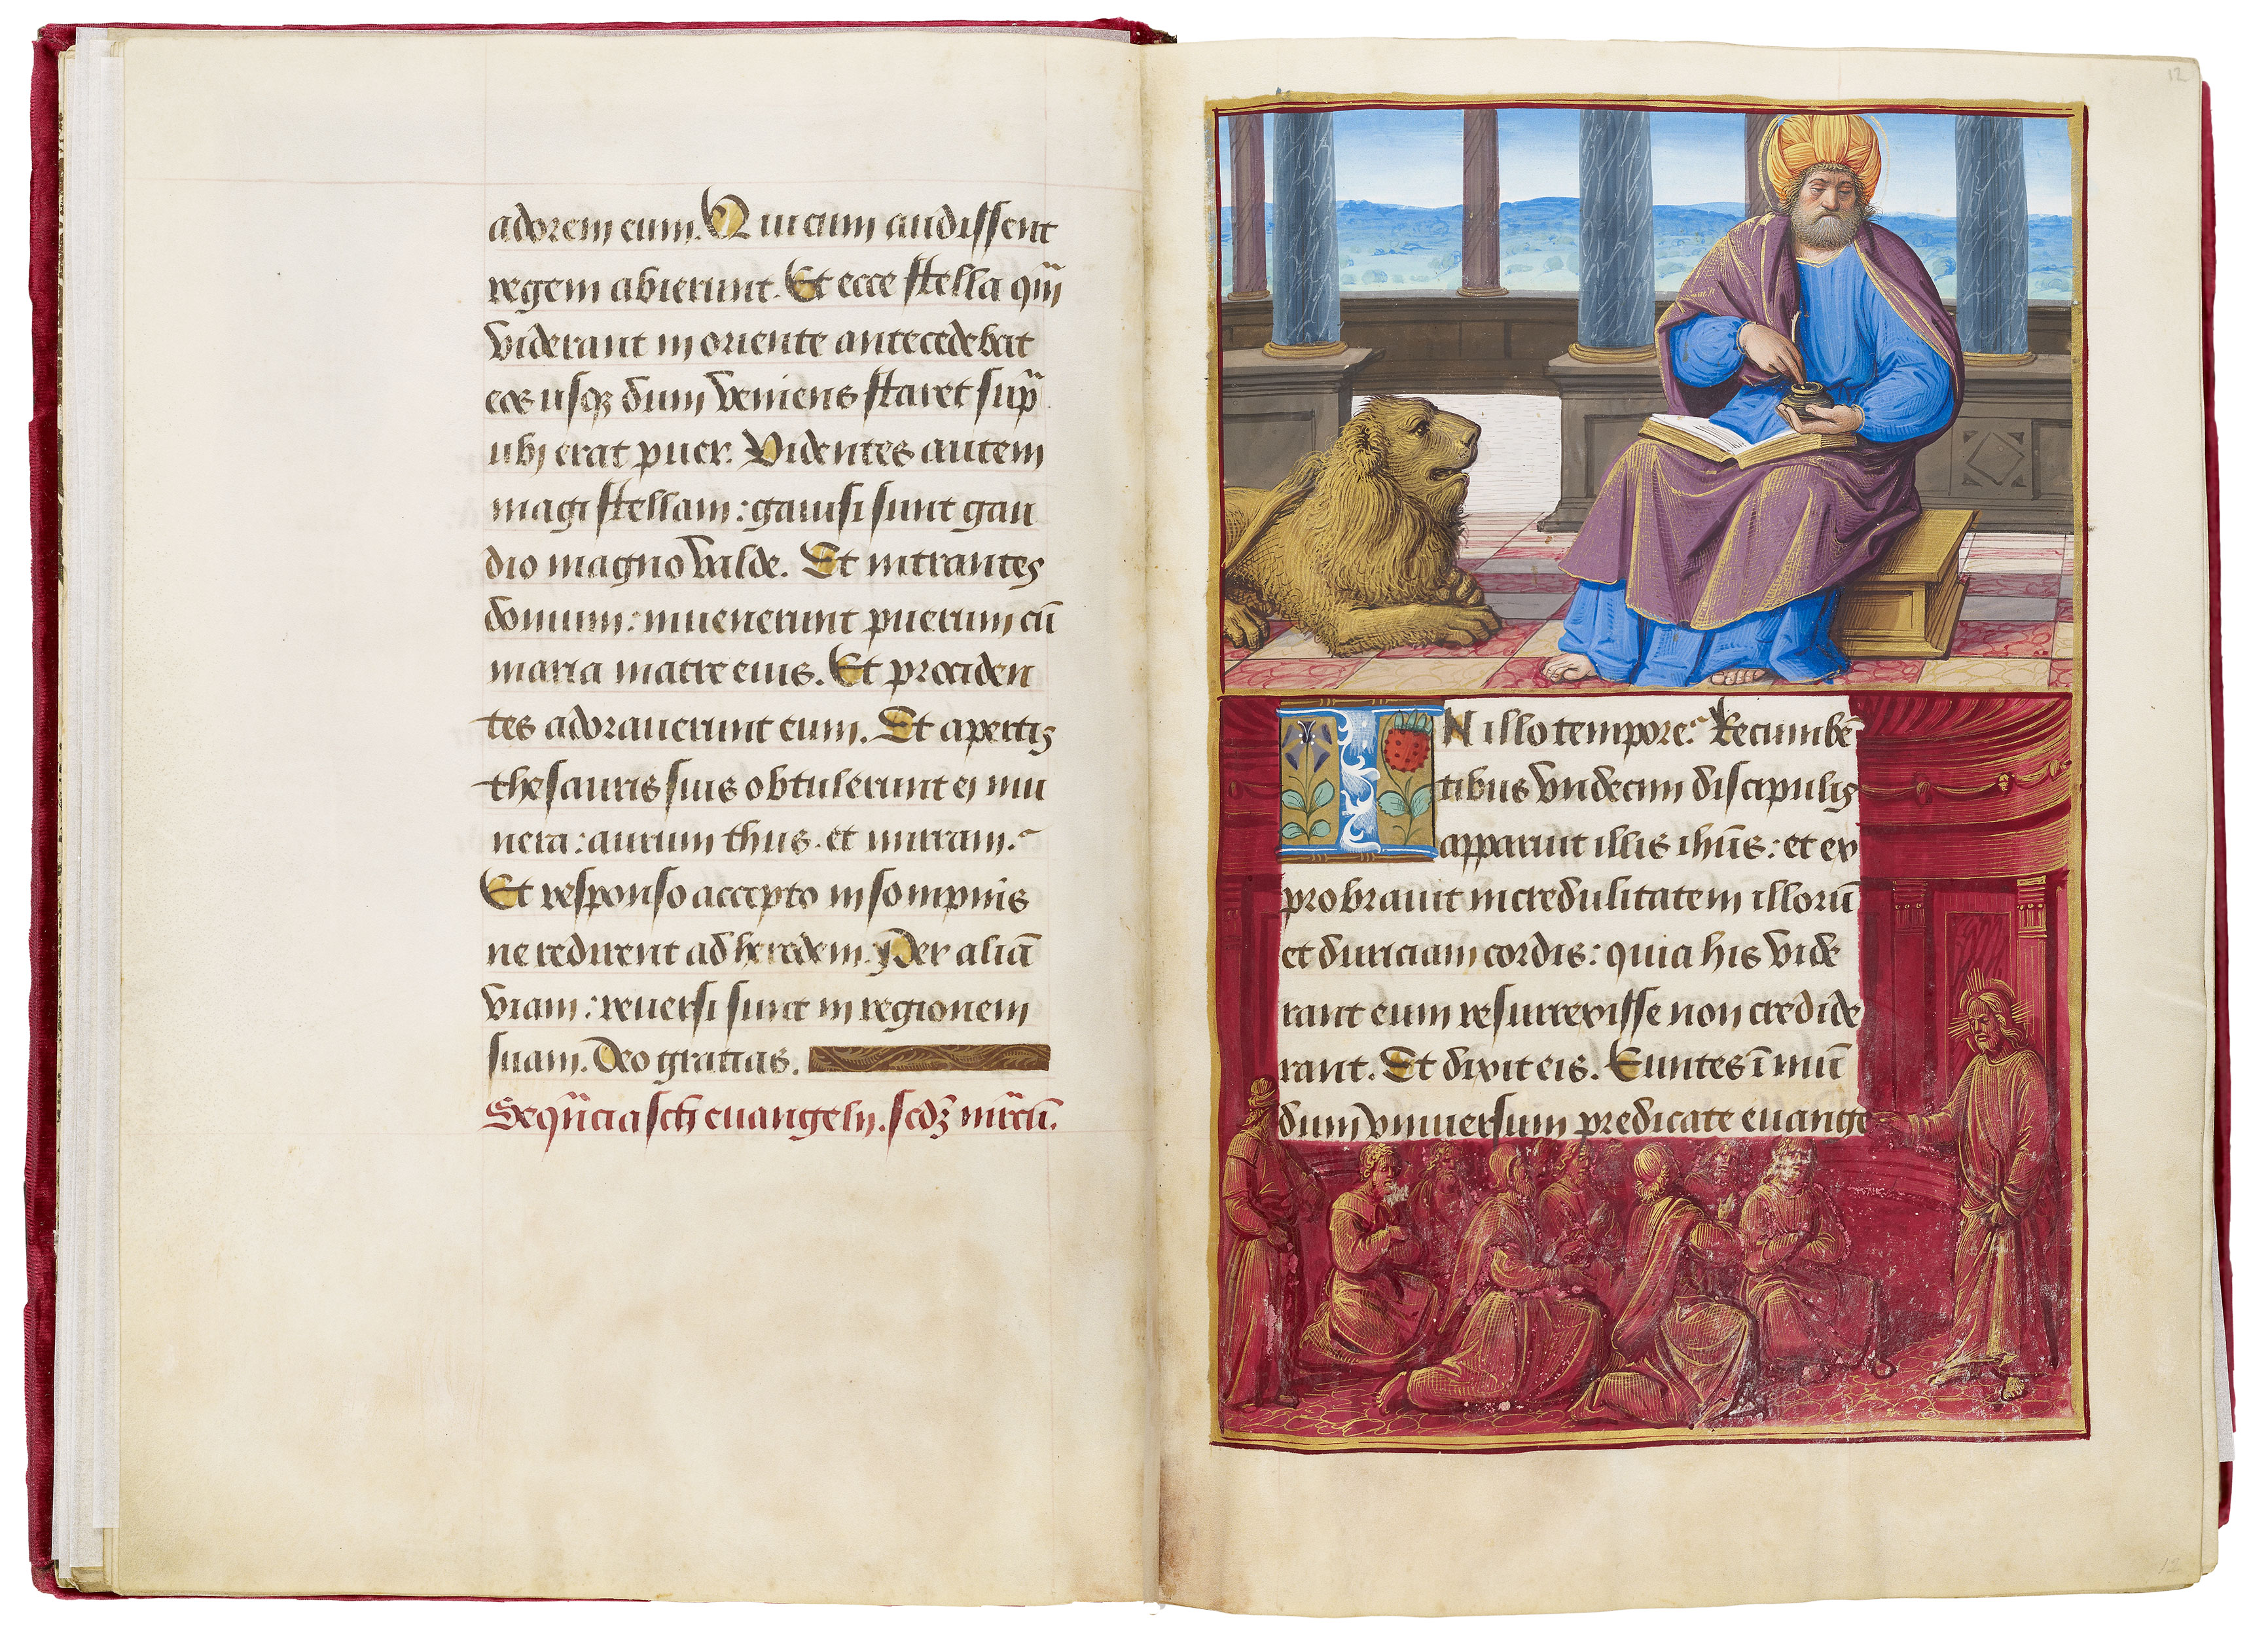 adorem eum. Qui cum audissent
regem abierunt. Et ecce stella qm̄
viderant in oriente antecedebat
eos usqꝫ dum veniens staret sup̄
ubi erat puer. Videntes autem
magi stellam: gauisi sunt gau
dio magno valde. Et intrantes
domum: inuenerunt puerum cū
maria matre eius. Et prociden
tes adorauerunt eum. Et apertis
thesauris suis obtulerunt ei mu
nera: aurum thus et mirram.
Et responso accepto in sompnis
ne redirent ad herodem. Per aliā
viam: reuersi sunt in regionem
suam. Deo gratias.
Seqūcia scī euangelij. scdꝫ mrcū.
12
IN illo tempore. Recumbē
tibus vndecim discipulis
apparuit illis ihūs: et ex
probrauit incredulitatem illorū
et duriciam cordis: quia his vide
rant eum resurrexisse non credide
rant. Et dixit eis. Euntes ī mū
dum vniuersum predicate euange
12